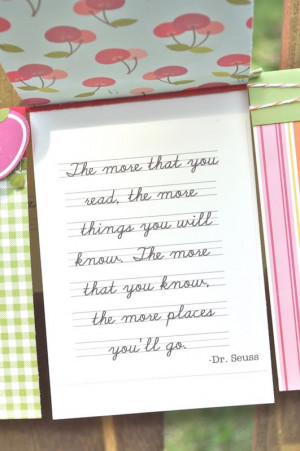 The more that you
read, the more
things you will
know. The more
that you know,
the more places
you'll go.
-Dr. Seuss